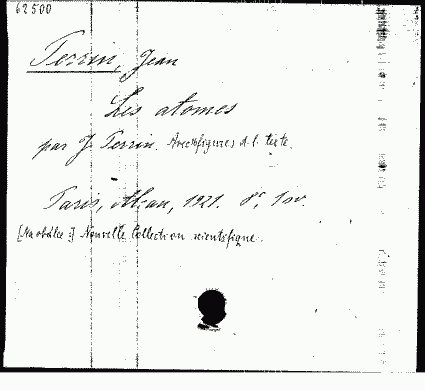 62500
Perrin, Jean
Les atomes
par J. Perrin. Avec figures d. l. texte.
Paris, Alcan, 1921. 8°. 1 v.
[Na obálce:] Nouvelle Collection scientifique.